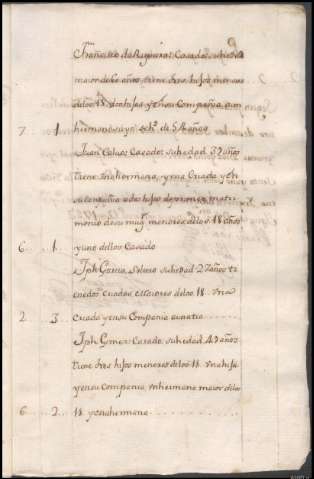 Francisco de Casado, su hedad
maior de 60 años, tiene tres hijos menores
delos 18. dos hijas y en su Compañia, a un
7. 1. hermano suyo de 54 años
Juan Casado, su hedad 37 años
tiene su hermana, y una Criada y en
su compañia dos hijos de primer matri-
monio de su muger menores delos 18 años
6. 1. y uno dellos Casado
Jph Garcia, Soltero su hedad 27 años ti
ene dos Criados maiores delos 18. una
2. 3. Criada y en su Compania
Jph Gomez Casado, su hedad 43 años
tiene tres hijos menores delos 18. una hija
y en su Compania un hermano maior delos
6. 2. 18 y una hermana